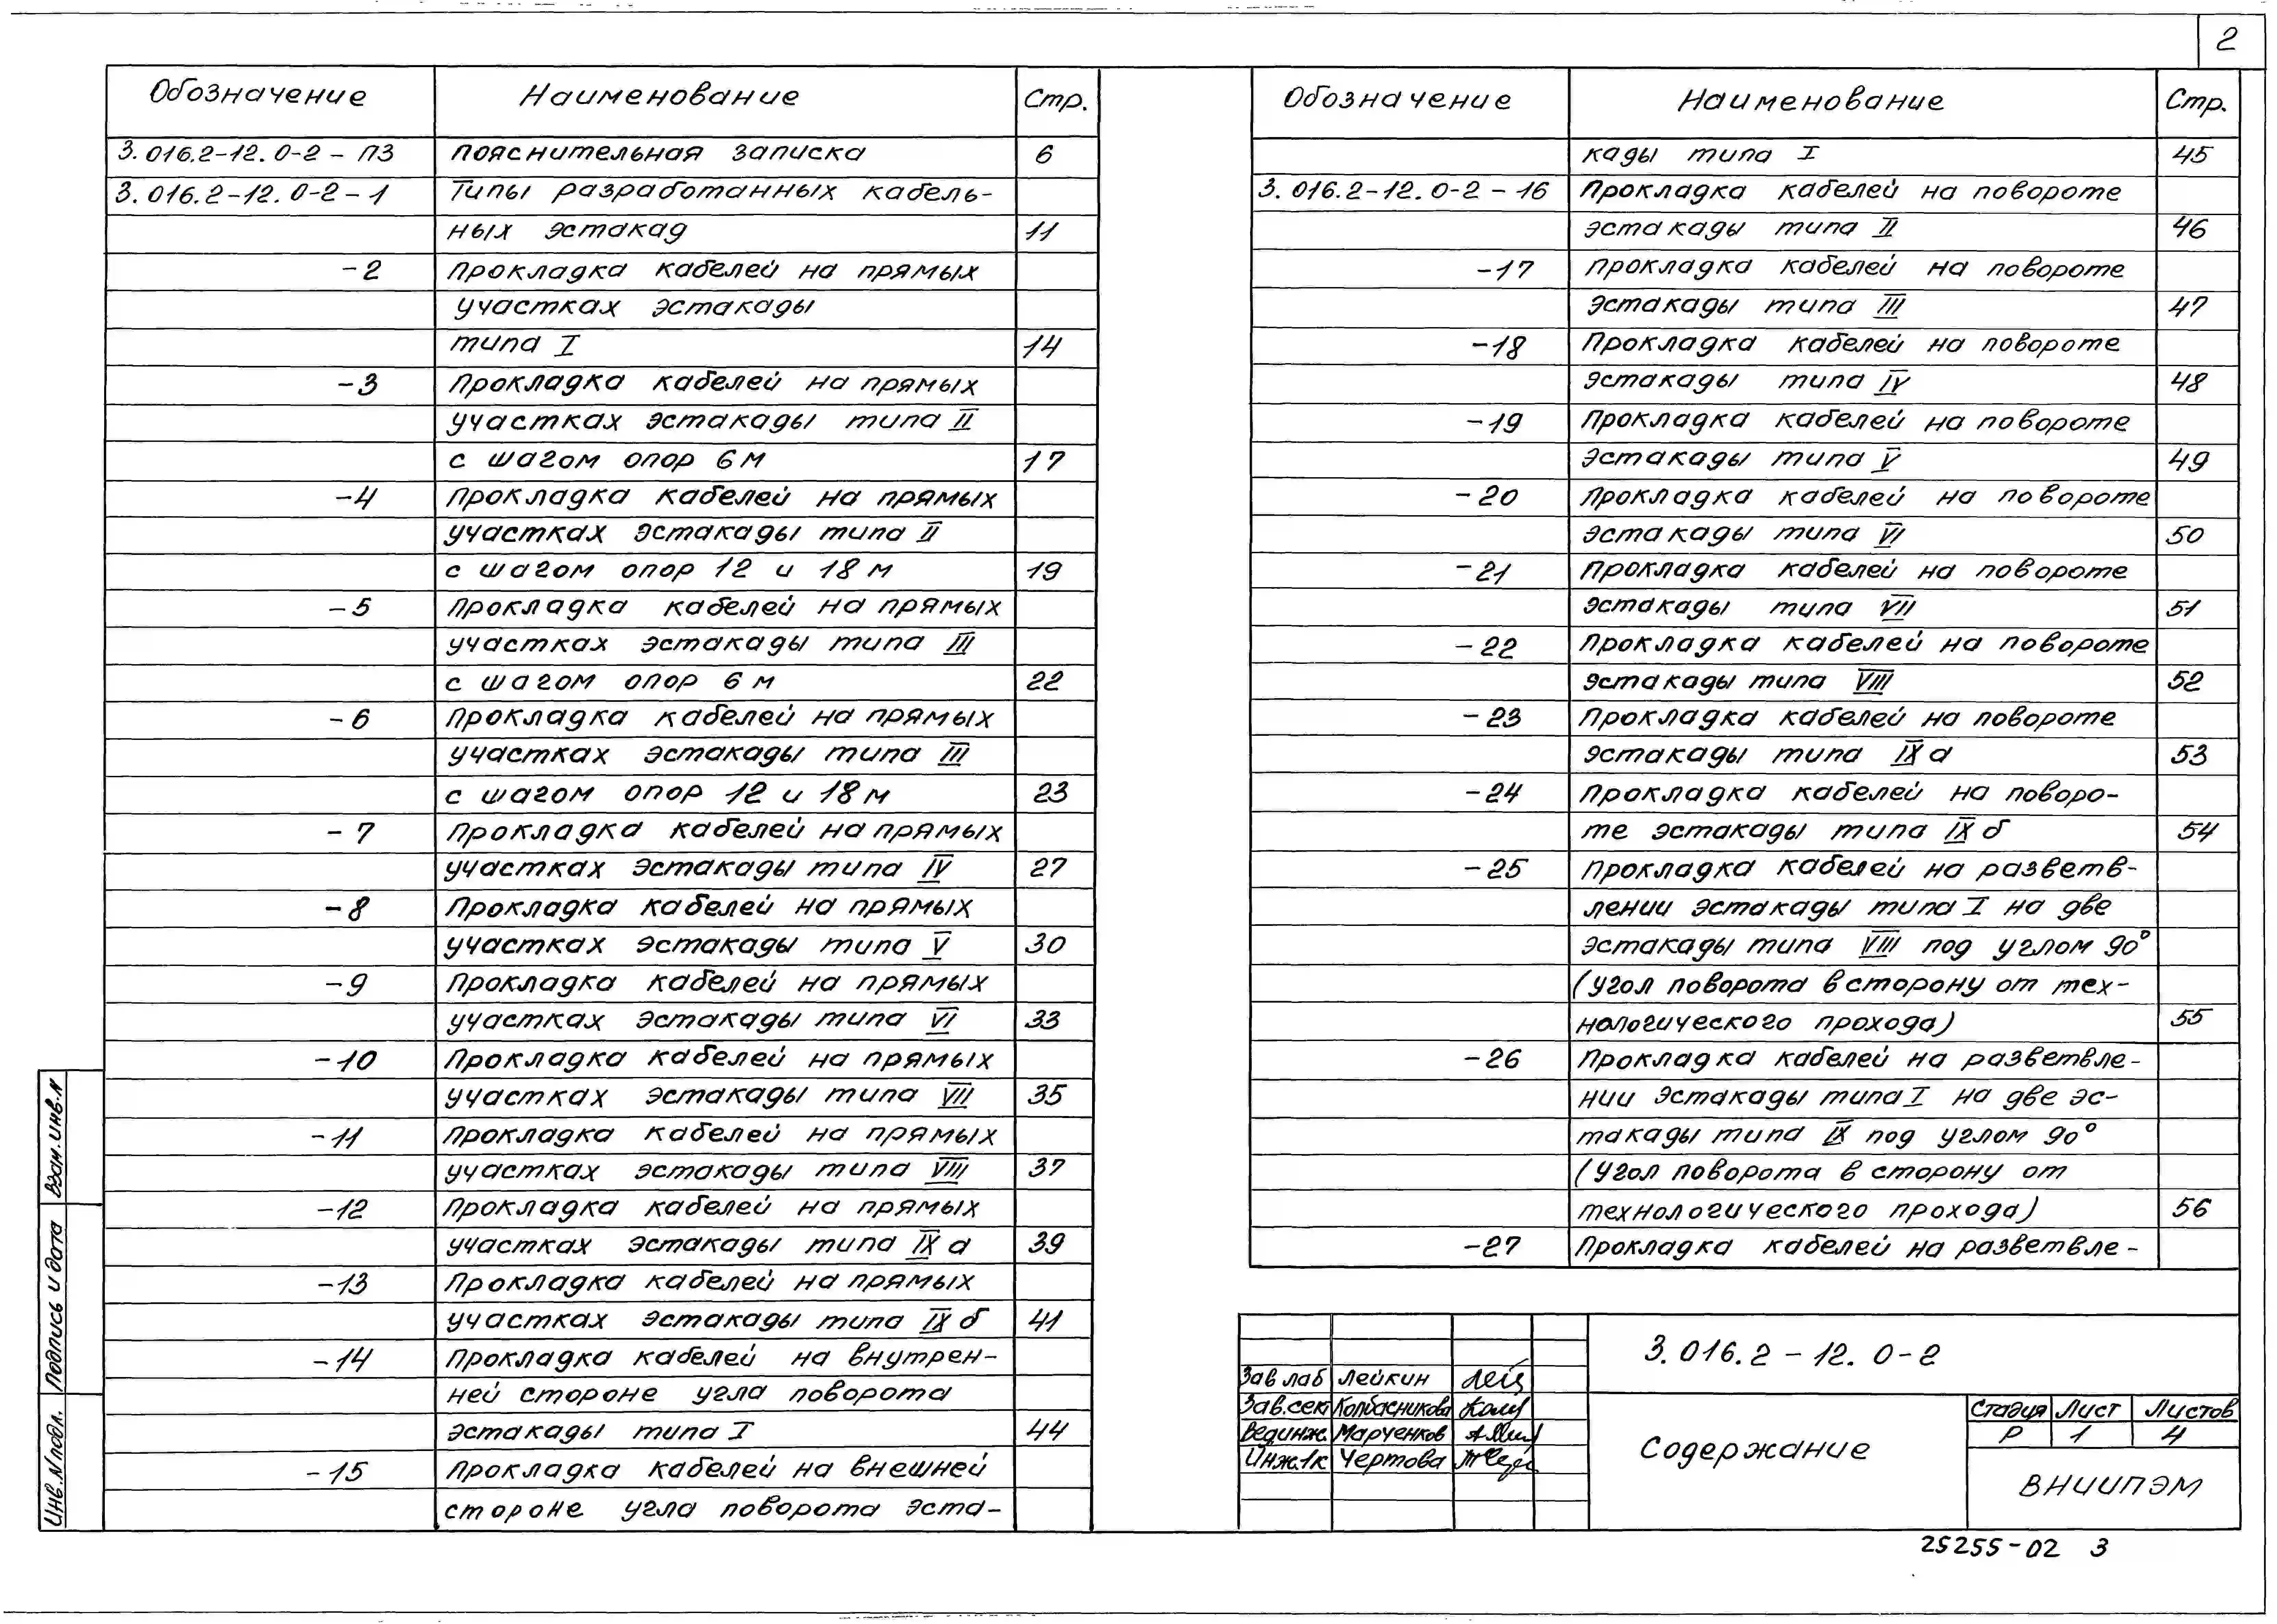 2
Обозначение Наименование Стр.
3.016.2-12.0-2-ПЗ Пояснительная записка 6
3.016.2-12.0-2-1 Типы разработанных кабель-
ных эстакад 11
-2 Прокладка кабелей на прямых
участках эстакады
типа I 14
-3 Прокладка кабелей на прямых
участках эстакады типа II
с шагом опор 6 м 17
-4 Прокладка кабелей на прямых
участках эстакады типа II
с шагом опор 12 и 18 м 19
-5 Прокладка кабелей на прямых
участках эстакады типа III
с шагом опор 6 м 22
-6 Прокладка кабелей на прямых
участках эстакады типа III
с шагом опор 12 и 18 м 23
-7 Прокладка кабелей на прямых
участках эстакады типа IV 27
-8 Прокладка кабелей на прямых
участках эстакады типа V 30
-9 Прокладка кабелей на прямых
участках эстакады типа VI 33
-10 Прокладка кабелей на прямых
участках эстакады типа VII 35
-11 Прокладка кабелей на прямых
участках эстакады типа VIII 37
-12 Прокладка кабелей на прямых
участках эстакады типа IX а 39
-13 Прокладка кабелей на прямых
участках эстакады типа IX б 41
-14 Прокладка кабелей на внутрен-
ней стороне угла поворота
эстакады типа I 44
-15 Прокладка кабелей на внешней
стороне угла поворота эста-
Обозначение Наименование Стр.
кады типа I 45
3.016.2-12.0-2-16 Прокладка кабелей на повороте
эстакады типа II 46
-17 Прокладка кабелей на повороте
эстакады типа III 47
-18 Прокладка кабелей на повороте
эстакады типа IV 48
-19 Прокладка кабелей на повороте
эстакады типа V 49
-20 Прокладка кабелей на повороте
эстакады типа VI 50
-21 Прокладка кабелей на повороте
эстакады типа VII 51
-22 Прокладка кабелей на повороте
эстакады типа VIII 52
-23 Прокладка кабелей на повороте
эстакады типа IX а 53
-24 Прокладка кабелей на поворо-
те эстакады типа IX б 54
-25 Прокладка кабелей на разветв-
лении эстакады типа I на две
эстакады типа VIII под углом 90°
(угол поворота в сторону от тех-
нологического прохода) 55
-26 Прокладка кабелей на разветвле-
нии эстакады типа I на две эс-
такады типа IX под углом 90°
(угол поворота в сторону от
технологического прохода) 56
-27 Прокладка кабелей на разветвле-
3.016.2-12.0-2
Зав лаб Лейкин
Зав.сект Колбасникова
Вед.инж. Марченков
Инж.1к Чертова
Содержание
Стадия Лист Листов
Р 1 4
ВНИИПЭМ
25255-02 3
Взам.инв.N
Подпись и дата
Инв.N подл.